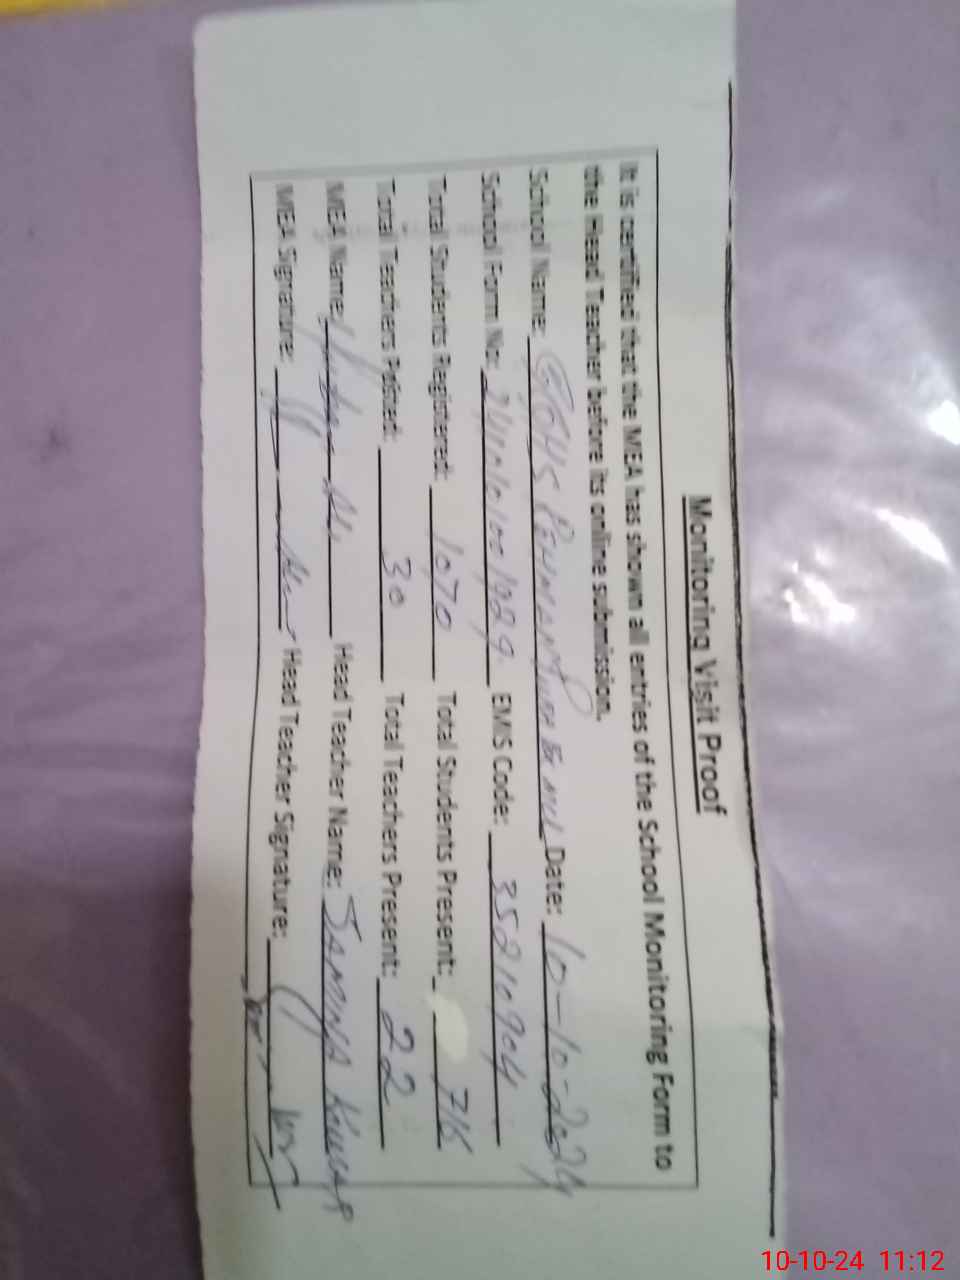 Monitoring Visit Proof
It is certified that the MEA has shown all entries of the School Monitoring Form to
the Head Teacher before its online submission.
School Name: GGHS Date: 10-10-2024
School Form No: EMIS Code: 35210904
Total Students Registered: 1070 Total Students Present: 716
Total Teachers Posted: 30 Total Teachers Present: 22
MEA Name: Head Teacher Name: Samina Kausar
MEA Signature: Head Teacher Signature:
10-10-24 11:12